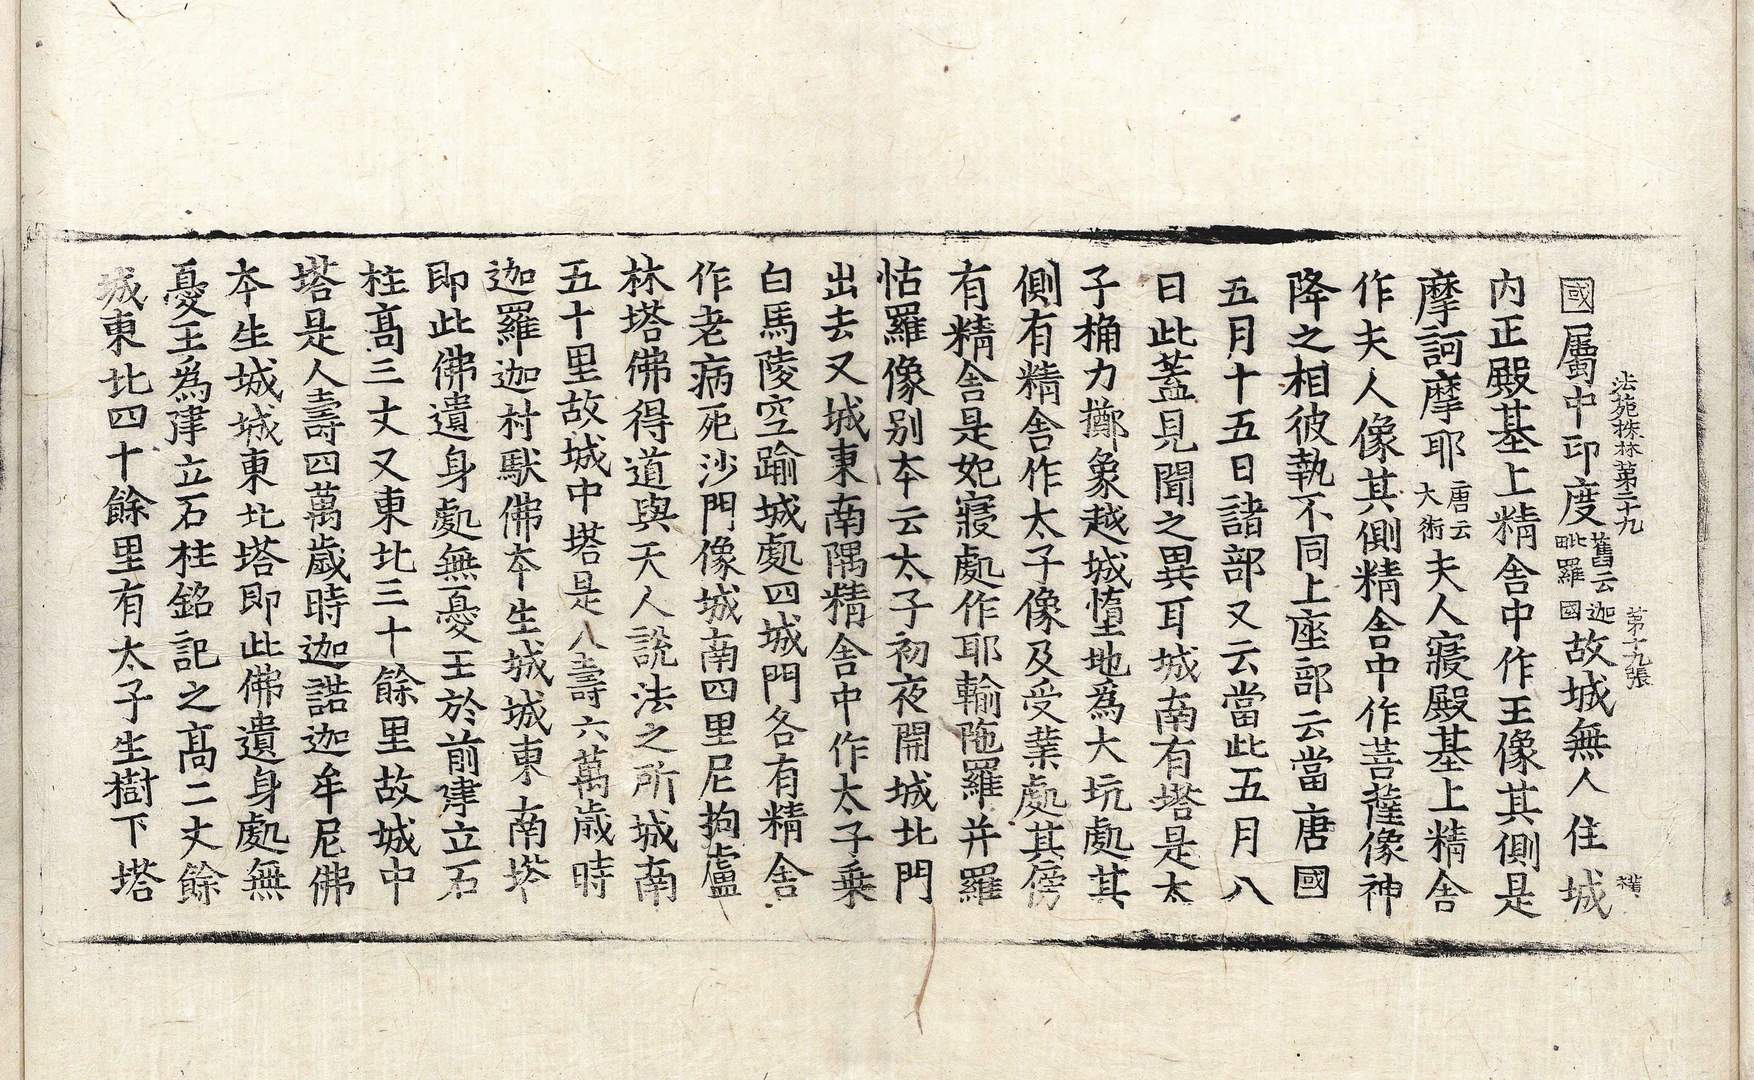 法苑珠林第二十九　第十九張　𩐳
國屬中印度舊云迦毗羅國故城無人住城
內正殿基上精舍中作王像其側是
摩訶摩耶唐云大術夫人寢殿基上精舍
作夫人像其側精舍中作菩薩像神
降之相彼執不同上座部云當唐國
五月十五日諸部又云當此五月八
日此蓋見聞之異耳城南有塔是太
子桷力擲象越城墮地為大坑處其
側有精舍作太子像及受業處其傍
有精舍是妃寢處作耶輸陁羅并羅
怙羅像別本云太子初夜開城北門
出去又城東南隅精舍中作太子乗
白馬陵空踰城處四城門各有精舍
作老病死沙門像城南四里尼拘盧
林塔佛得道與天人說法之所城南
五十里故城中塔是人壽六萬歲時
迦羅迦村馱佛本生城城東南塔
即此佛遺身處無憂王於前建立石
柱高三丈又東北三十餘里故城中
塔是人壽四萬歲時迦諾迦牟尼佛
本生城城東北塔即此佛遺身處無
憂王為建立石柱銘記之高二丈餘
城東北四十餘里有太子生樹下塔